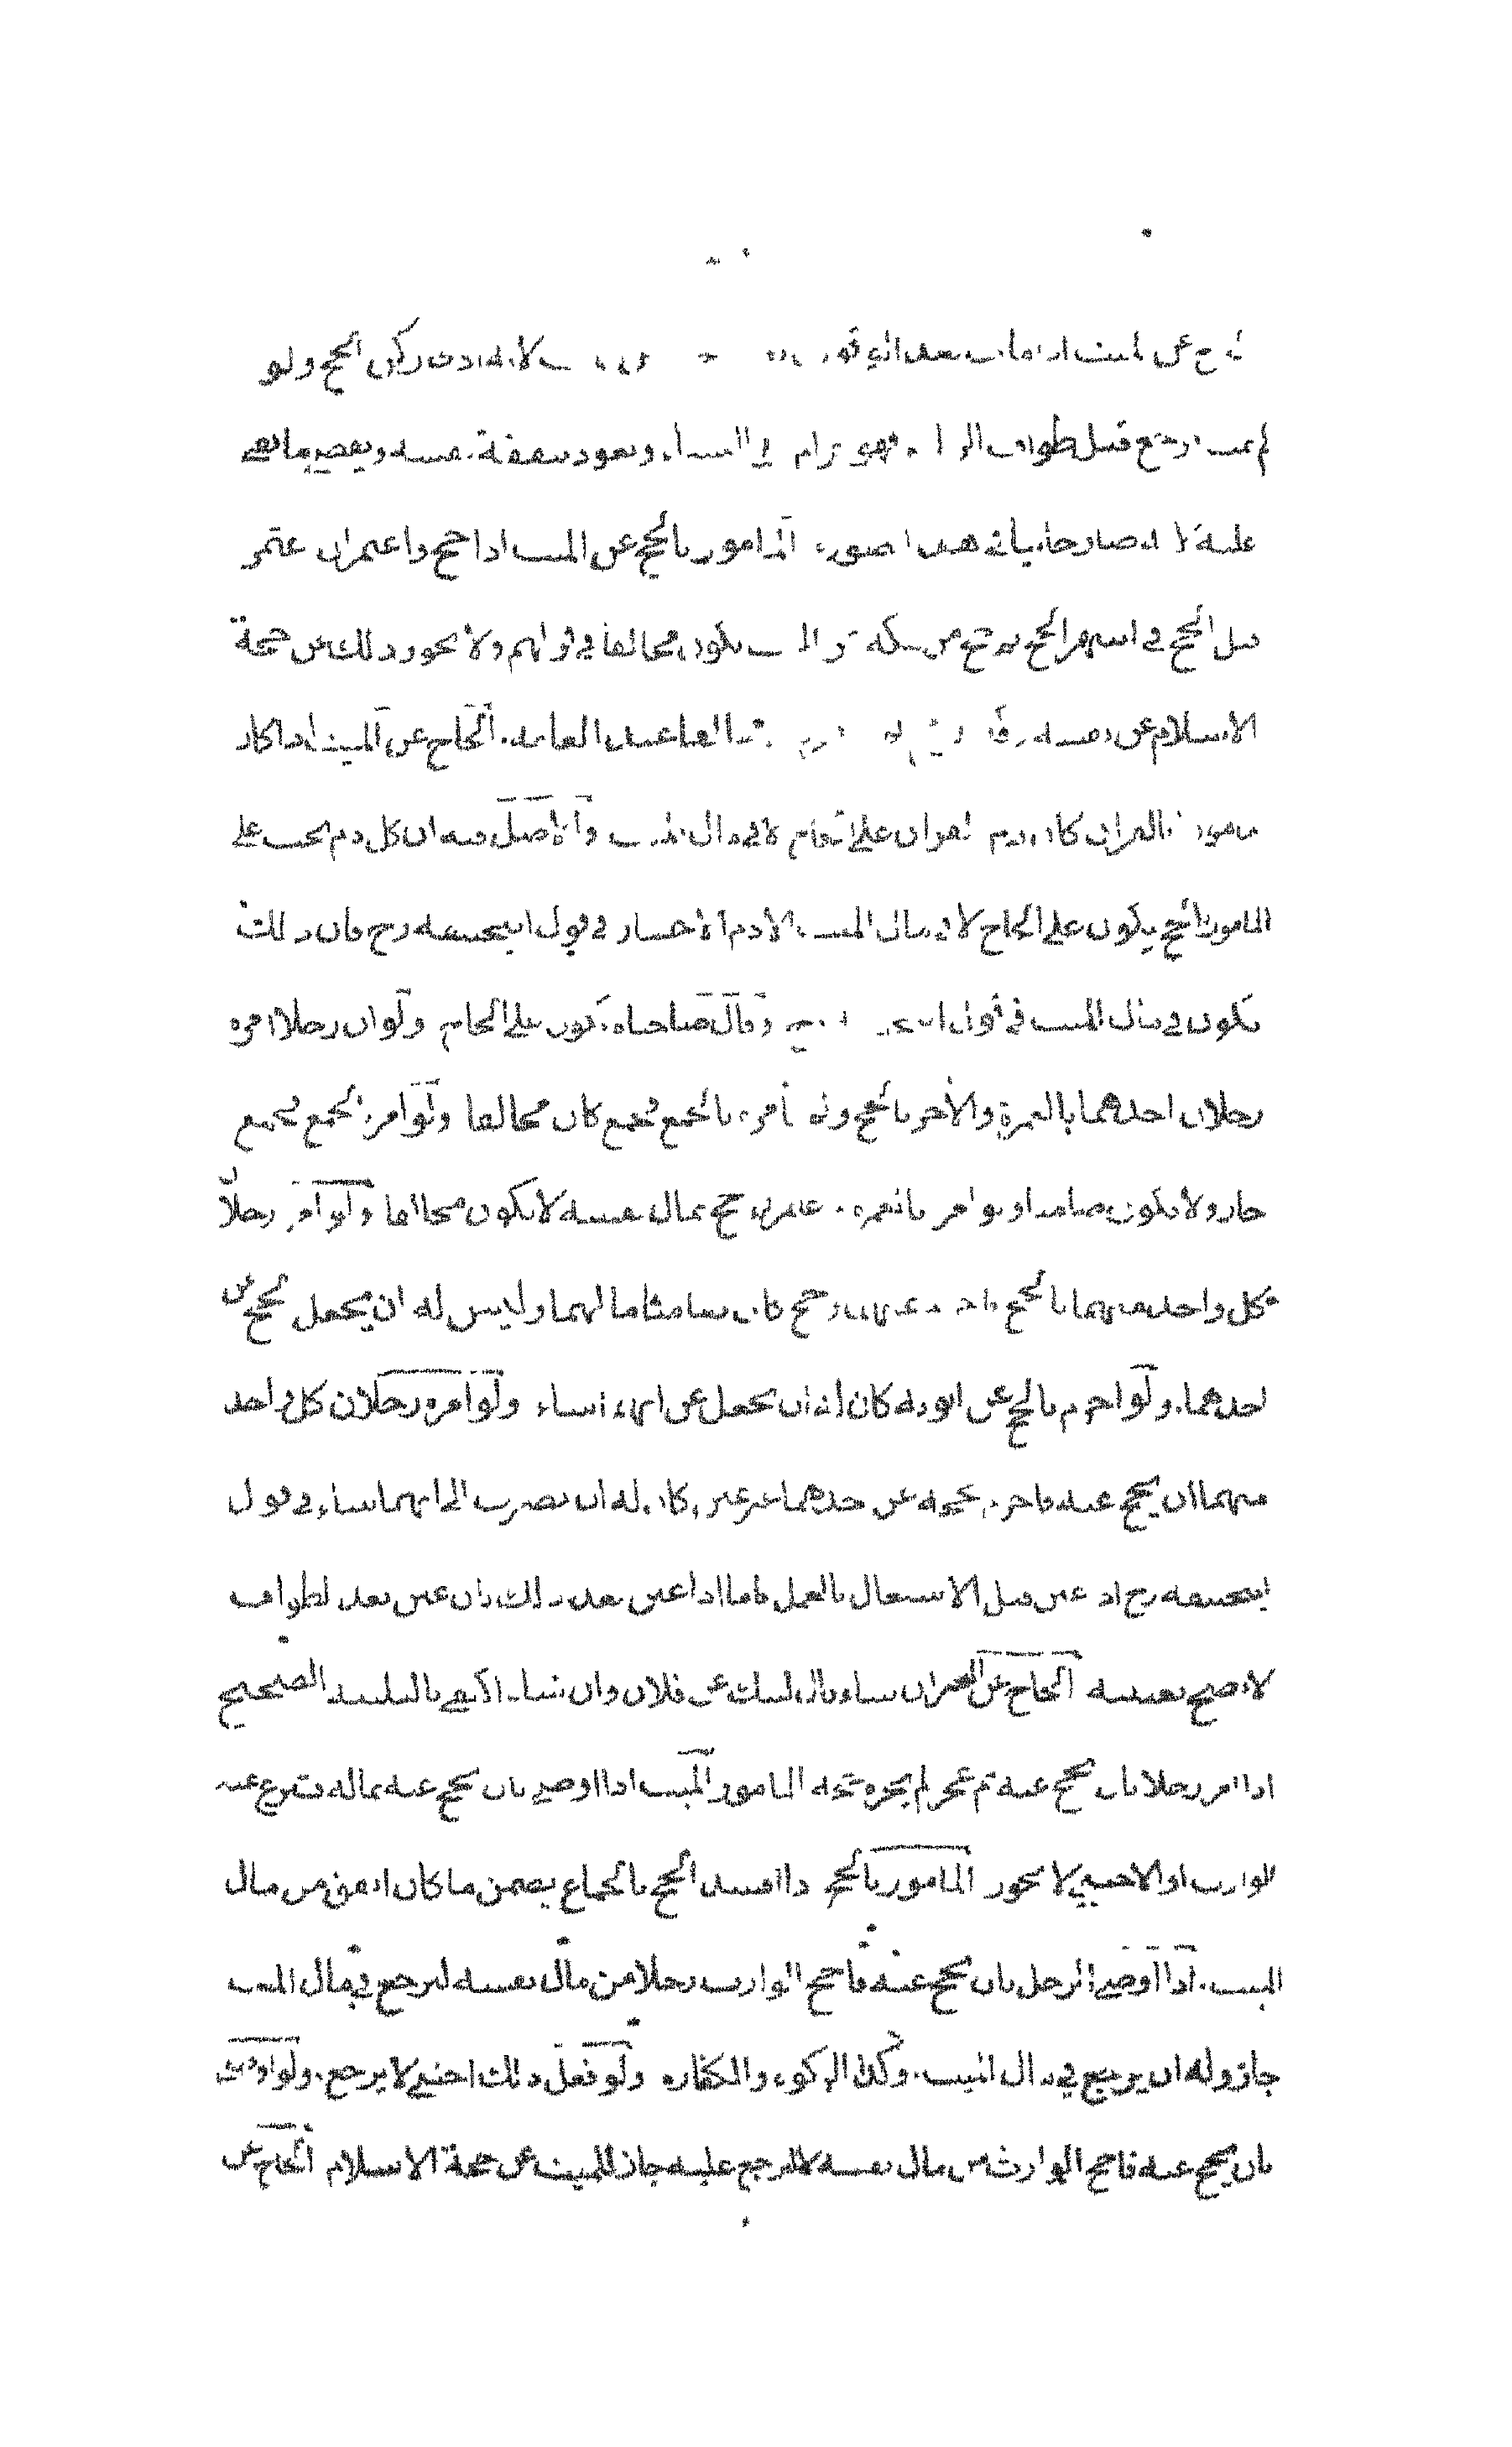 عن الميت اذا مات بعد الوقوف لانه ادى ركن الحج ولو
لم يمت ورجع قبل طواف فهو حرام النساء ويعود بنفقة نفسه ويقضي ما بقي
عليه صار جانيا في هذه الصورة المامور بالحج عن الميت اذا حج واعتمر ان عتمر
قبل الحج في اشهر الحج حج من مكة عن الميت يكون مخالفا في قولهم ولا يجوز ذلك عن حجة
الاسلام عن نفسه الحاج عن الميت اذا كان
مامورا بالقران كان دم القران على الحاج لا في مال الميت والاصل فيه ان كل دم يجب على
المامور بالحج يكون على الحاج لا في مال الميت الا دم الاحصار في قول ابيحنيفه رح فان ذلك
يكون في مال الميت في قول وقال صاحباه يكون على الحاج ولو ان رجلا امره
رجلان احدهما بالعمرة والآخر بالحج ولم يامره بالجمع فجمع كان مخالفا ولو امره بالجمع فجمع
جاز ولا يكون ضامنا ولو امر بالعمرة فاعتمر ثم حج بمال نفسه لا يكون مخالفا ولو امر رجلا
كل واحد منهما بالحج وحج كان ضامنا مالهما وليس له ان يجعل الحج عن
احدهما ولو احرم بالحج عن ابويه كان له ان يجعل عن ايهما شاء ولو امره رجلان كل واحد
منهما ان يحج عنه فاحرم بحجه عن احدهما غير عين كان له ان يصرف الى ايهما شاء في قول
ابيحنيفه رح اذا عين قبل الاشتغال بالعمل فاما اذا عين بعد ذلك بان عين بعد الطواف
لا يصح تعيينه الحاج عن الغير ان شاء قال لبيك عن فلان وان شاء اكتفى بالتلبية الصحيح
اذا امر رجلا بان يحج عنه ثم عجز لم يجزه حجه المامور الميت اذا اوصى بان يحج عنه بماله فتبرع عنه
الوارث او الاجنبي لا يجوز المامور بالحج اذا افسد الحج بالجماع يضمن ما كان انفق من مال
الميت. اذا اوصى الرجل بان يحج عنه فاحج الوارث رجلا من مال نفسه ليرجع في مال الميت
جاز وله ان يرجع في مال الميت. وكذا الزكوة والكفاره ولو فعل ذلك اجنبي لا يرجع. ولو اوصى
بان يحج عنه فاحج الوارث من مال نفسه لا ليرجع عليه جاز للميت عن حجة الاسلام الحاج عن